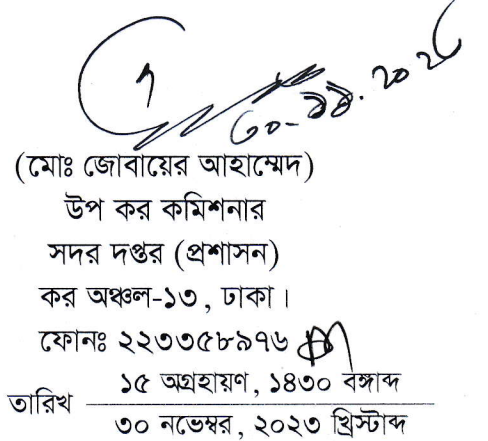 ৩০-১১.২০২৩
(মোঃ জোবায়ের আহাম্মেদ)
উপ কর কমিশনার
সদর দপ্তর (প্রশাসন)
কর অঞ্চল-১৩, ঢাকা।
ফোনঃ ২২৩৩৫৮৯৭৬
তারিখ
১৫ অগ্রহায়ণ, ১৪৩০ বঙ্গাব্দ
৩০ নভেম্বর, ২০২৩ খ্রিস্টাব্দ